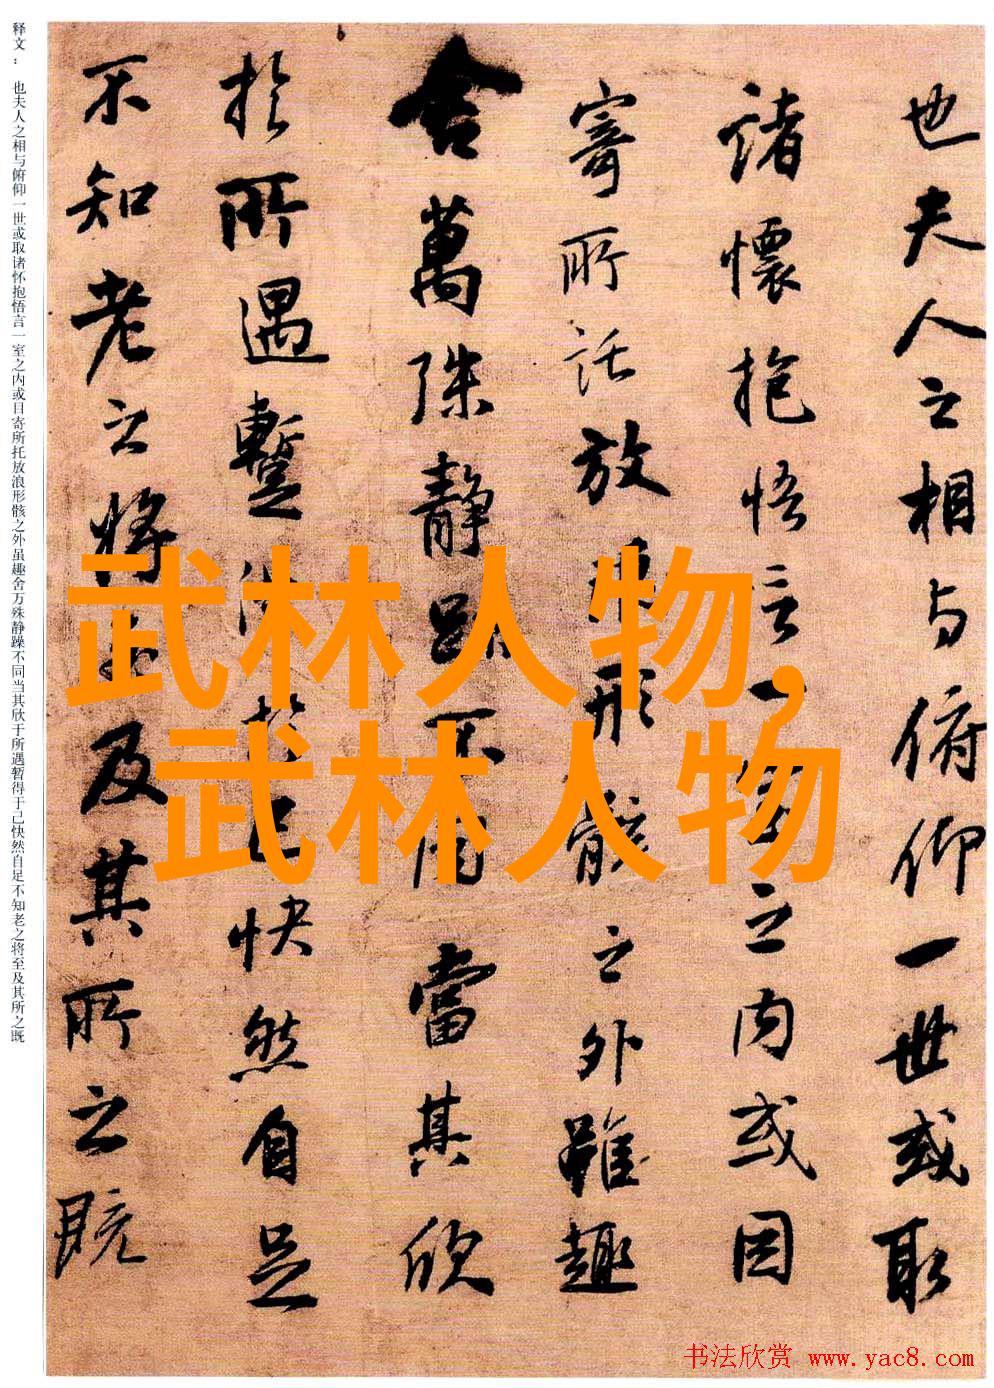 也夫人之相与俯仰一世或取
諸懷抱悟言一室之内或因
寄所託放浪形骸之外雖趣
舍萬殊静躁不同當其欣
於所遇暫得於己快然自足
不知老之将至及其所之既
释文： 也夫人之相与俯仰一世或取诸怀抱悟言一室之内或目寄所托放浪形骸之外虽趣舍万殊静躁不同当其欣于所遇暂得于己快然自足不知老之将至及其所之既
武林人物,
武林人物
书法欣赏 www.yac8.com